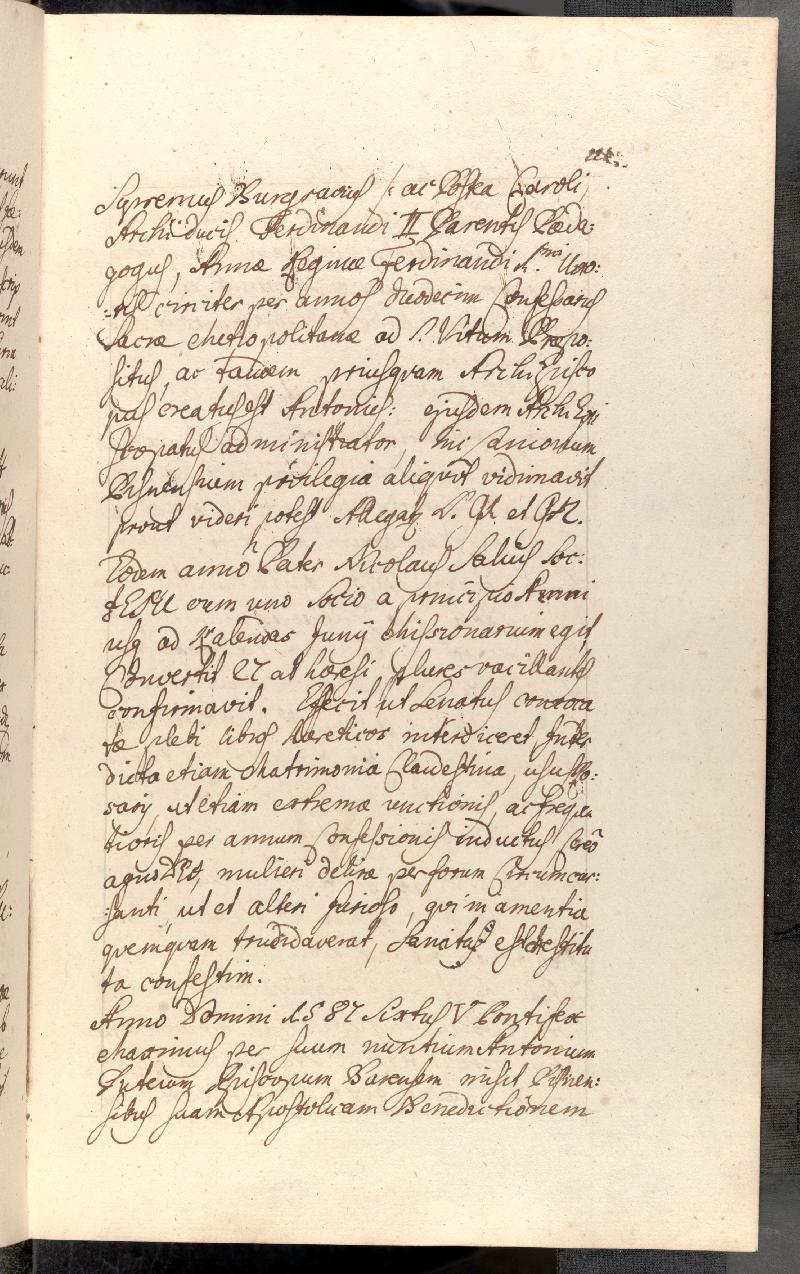 111.
Supremus Burgravius /: ac Postea Caroli
Archiducis Ferdinandi II Parentis Pæda:
gogus, Annæ Reginæ Ferdinandi 1.mi Uxo:
:ris circiter per annos duodecim Confessarius
Sacræ Metropolitanæ ad S. Vitum Præpo:
situs, ac tandem priusquam Archi Episco
pus creatus est Antonius: ejusdem Archi Epi
scopatus administrator, hic Seniorum
Pilsnensium privilegia aliquot vidimavit
prout videri potest Allegat L. Q. et R.
Eodem anno Pater Nicolaus Salius Soc:
JESU cum uno Socio a principio Anni
usq ad Kalendas Junÿ Missionarium egit
Convertit 27 ab hæresi plures vacillantes
confirmavit. Effecit ut Senatus convoca
tæ plebi libros hæreticos interdiceret Inter
dicta etiam Matrimonia Clandestina, usus Ro:
sarÿ, ut etiam extremæ unctionis, ac frequen
tioris per annum Confessionis inductus Cereo
agno Dei, mulieri deliræ per forum Circumcur:
:santi, ut et alteri furioso, qui in amentia
quemquam trucidaverat, Sanitas est restitu
ta confestim.
Anno Domini 1587 Sixtus V Pontifex
Maximus per suum nuntium Antonium
Puteum Episcopum Barensem misit Pilsnen:
sibus suam Apostolicam Benedictionem